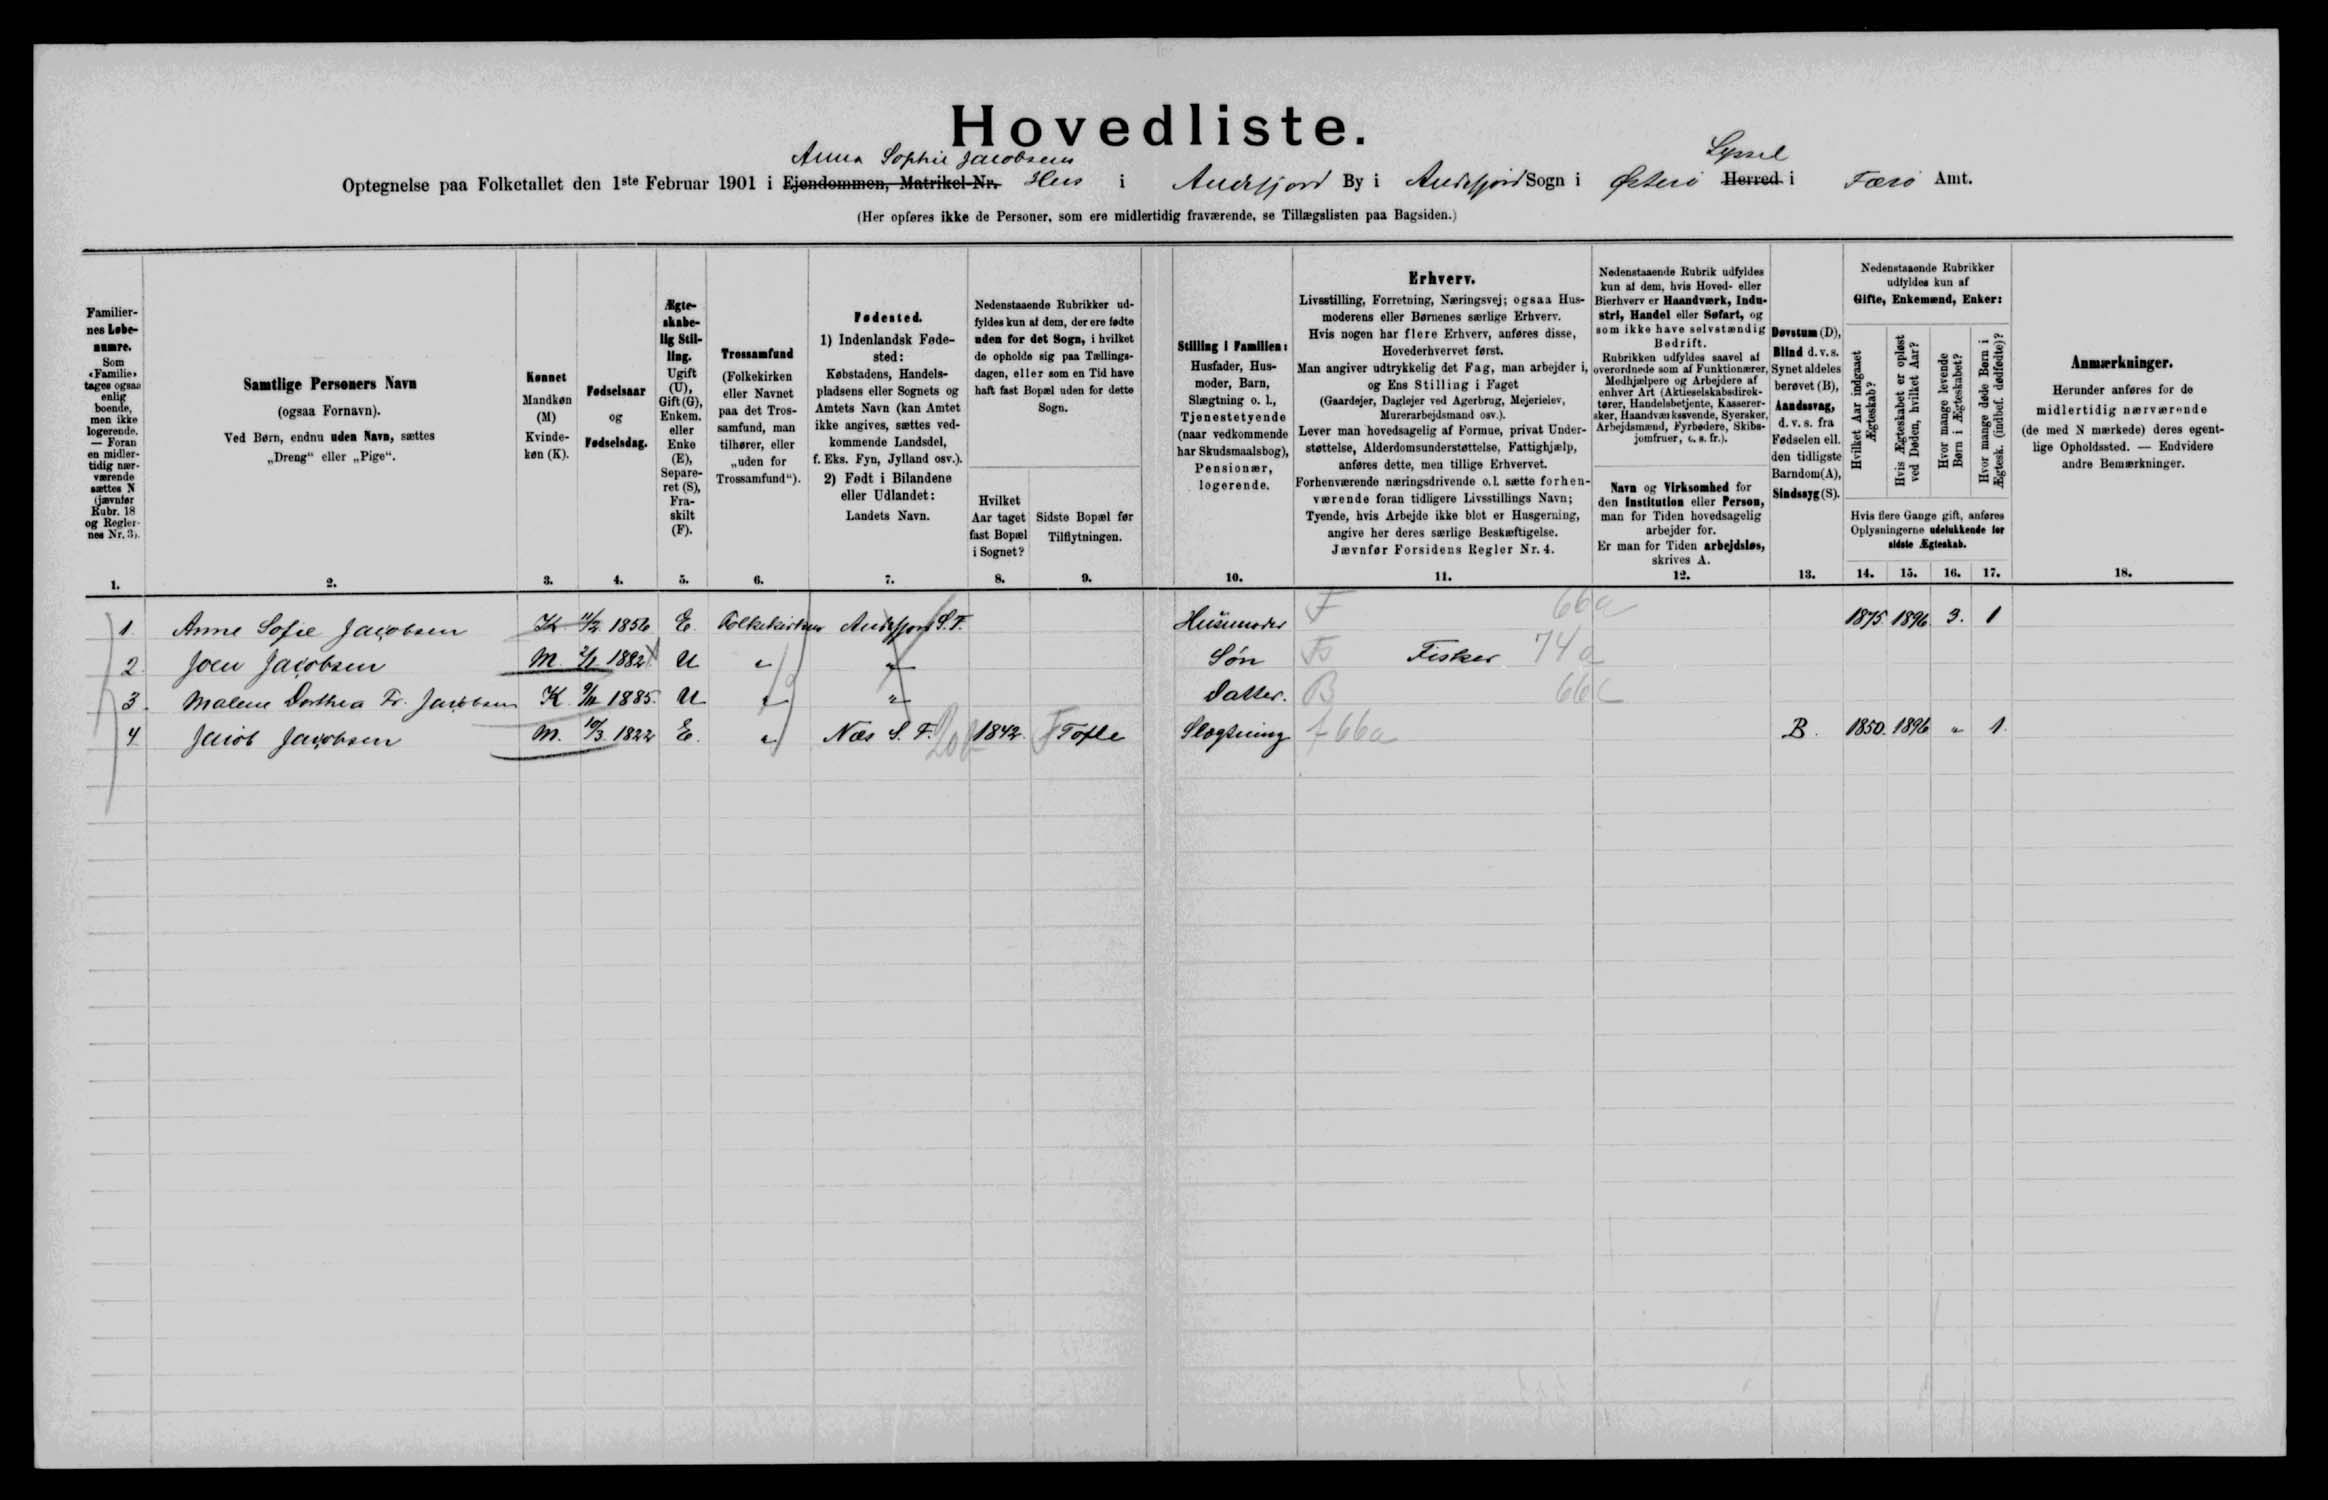 Hovedliste.
Anna Sophie Jacobsens Syssel
Optegnelse paa Folketallet den 1ste Februar 1901 i Ejendommen, Matrikel-Nr. Hus i Andefjord By i Andefjord Sogn i Østerø Herred i Færø Amt.
(Her opføres ikke de Personer, som ere midlertidig fraværende, se Tillægslisten paa Bagsiden.)
Familier-
nes Løbe-
numre.
Som
«Familie»
tages ogsaa
enlig
boende,
men ikke
logerende.
— Foran
en midler-
tidig nær-
værende
sættes N
(jævnfør
Rubr. 18
og Regler-
nes Nr. 3).
1.
Samtlige Personers Navn
(ogsaa Fornavn).
Ved Børn, endnu uden Navn, sættes
„Dreng“ eller „Pige“.
2.
Kønnet
Mandkøn
(M)
Kvinde-
køn (K).
3.
Fødselsaar
og
Fødselsdag.
4.
Ægte-
skabe-
lig Stil-
ling.
Ugift
(U),
Gift (G),
Enkem.
eller
Enke
(E),
Separe-
ret (S),
Fra-
skilt
(F).
5.
Trossamfund
(Folkekirken
eller Navnet
paa det Tros-
samfund, man
tilhører, eller
„uden for
Trossamfund“).
6.
Fødested.
1) Indenlandsk Føde-
sted:
Købstadens, Handels-
pladsens eller Sognets og
Amtets Navn (kan Amtet
ikke angives, sættes ved-
kommende Landsdel,
f. Eks. Fyn, Jylland osv.).
2) Født i Bilandene
eller Udlandet:
Landets Navn.
7.
Nedenstaaende Rubrikker ud-
fyldes kun af dem, der ere fødte
uden for det Sogn, i hvilket
de opholde sig paa Tællings-
dagen, eller som en Tid have
haft fast Bopæl uden for dette
Sogn.
Hvilket
Aar taget
fast Bopæl
i Sognet?
8.
Sidste Bopæl før
Tilflytningen.
9.
Stilling i Familien:
Husfader, Hus-
moder, Barn,
Slægtning o. l.,
Tjenestetyende
(naar vedkommende
har Skudsmaalsbog),
Pensionær,
logerende.
10.
Erhverv.
Livsstilling, Forretning, Næringsvej; ogsaa Hus-
moderens eller Børnenes særlige Erhverv.
Hvis nogen har flere Erhverv, anføres disse,
Hovederhvervet først.
Man angiver udtrykkelig det Fag, man arbejder i,
og Ens Stilling i Faget
(Gaardejer, Daglejer ved Agerbrug, Mejerielev,
Murerarbejdsmand osv.).
Lever man hovedsagelig af Formue, privat Under-
støttelse, Alderdomsunderstøttelse, Fattighjælp,
anføres dette, men tillige Erhvervet.
Forhenværende næringsdrivende o.l. sætte forhen-
værende foran tidligere Livsstillings Navn;
Tyende, hvis Arbejde ikke blot er Husgerning,
angive her deres særlige Beskæftigelse.
Jævnfør Forsidens Regler Nr. 4.
11.
Nedenstaaende Rubrik udfyldes
kun af dem, hvis Hoved- eller
Bierhverv er Haandværk, Indu-
stri, Handel eller Søfart, og
som ikke have selvstændig
Bedrift.
Rubrikken udfyldes saavel af
overordnede som af Funktionærer,
Medhjælpere og Arbejdere af
enhver Art (Aktieselskabsdirek-
tører, Handelsbetjente, Kasserer-
sker, Haandværkssvende, Syersker,
Arbejdsmænd, Fyrbødere, Skibs-
jomfruer, o. s. fr.).
Navn og Virksomhed for
den Institution eller Person,
man for Tiden hovedsagelig
arbejder for.
Er man for Tiden arbejdsløs,
skrives A.
12.
Døvstum (D),
Blind d. v. s.
Synet aldeles
berøvet (B),
Aandssvag,
d. v. s. fra
Fødselen ell.
den tidligste
Barndom(A),
Sindssyg (S).
13.
Nedenstaaende Rubrikker
udfyldes kun af
Gifte, Enkemænd, Enker:
Hvilket Aar indgaaet
Ægteskab?
Hvis Ægteskabet er opløst
ved Døden, hvilket Aar?
Hvor mange levende
Børn i Ægteskabet?
Hvor mange døde Børn i
Ægtesk. (indbef. dødfødte)?
Hvis flere Gange gift, anføres
Oplysningerne udelukkende for
sidste Ægteskab.
14. 15. 16. 17.
Anmærkninger.
Herunder anføres for de
midlertidig nærværende
(de med N mærkede) deres egent-
lige Opholdssted. — Endvidere
andre Bemærkninger.
18.
1. Anne Sofie Jacobsen K. 11/2 1856 E. Folkekirken Andefjord S. F. Husmoder F 66a 1875 1896 3. 1
2. Joen Jacobsen M. 2/1 1882 U " " Søn Fisker 74a
3. Malene Dorthea Fr. Jacobsen K 9/11 1885. U " " Datter. B 66c
4. Jacob Jacobsen M. 10/3 1822 E. " Næs S. F. 1842 Tofte Slægtning f 66a B. 1850. 1896 " 1.